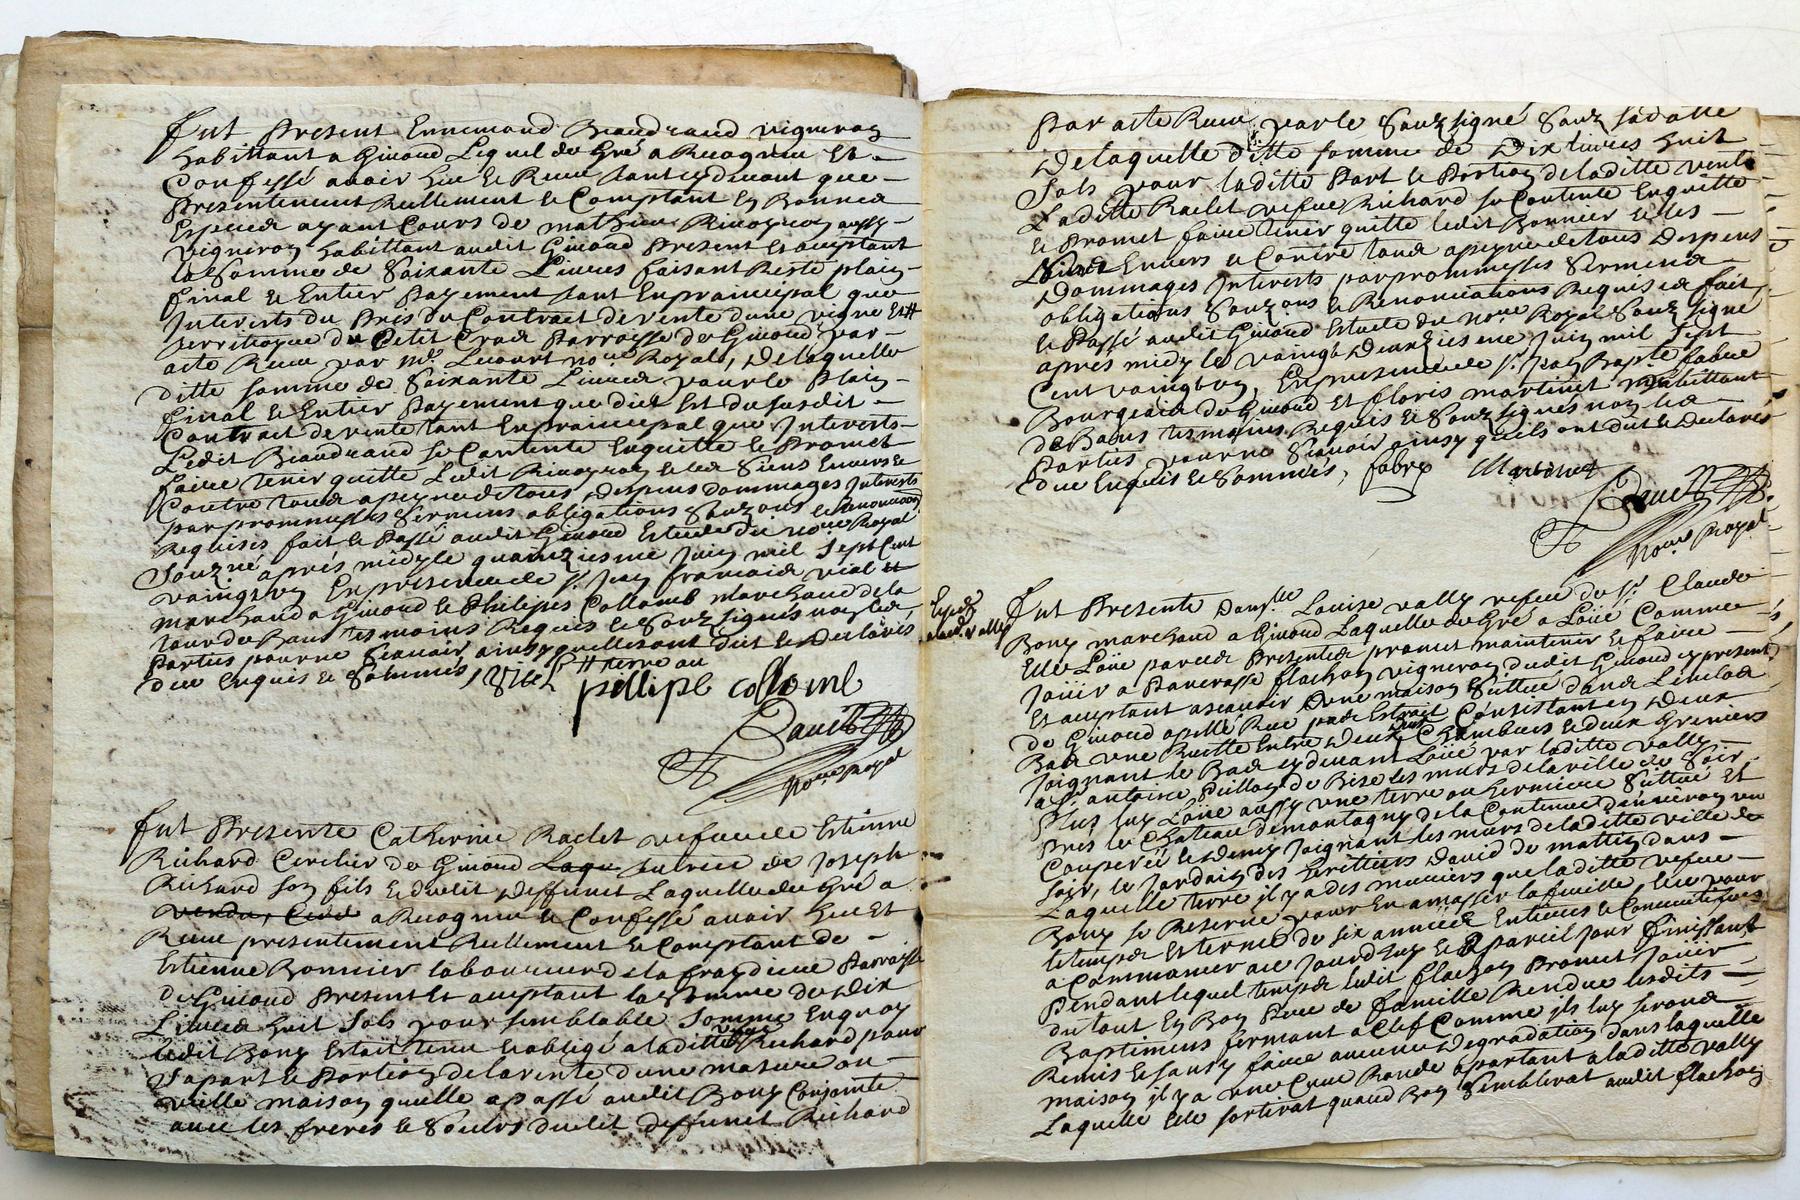 fut Present Ennemond Beaudrand vigneron
habittant a Givord Lequel de Gré a Recognu Et
Confessé avoir heu et Receu tant cydevant que
Presentement Reellement et Comptant En Bonnes
Especes ayant Cours de mathieu aussy
vigneron habittant audit Givord Present et acceptant
la Somme de Soixante Livres faisant Reste plain
final et Entier Payement tant En principal que
Interests du Prix du Contrat de vente dune vigne Et #
verchere du Petit Parroisse de Givord par
acte Receu par me. nore. Royal, De laquelle
ditte somme de Soixante Livres pour le Plain
final et Entier Payement que dict Est du susdit
Contrat de vente tant En principal que Interests
Ledit Beaudrand se Contente Enquitte et Promet
faire tenir quitte Ledit et les Siens Envers et
Contre tous a peyne de tous Despens dommages Interests
par prommesses Sermens obligations Souzmons et Renoncaons
Requises fait et Passé audit Givord Estude du nore. Royal
Souzné aprés midy le quainziesme Juin mil Sept Cent
vaingt En presence de Sr. Jean francois vial
marchand a Givord et Philipes Collomb marchand de la
tour de tesmoins Requis et Souz signés non les
Parties pour ne Scavoir ainsy quelles ont dict et Declarés
due Enquis et Sommés # terre ou
pillipe collomb
nore royal
fut Presente Catherine Raclet vefue de Estienne
Richard Cerclier de Givord Laqu tutrice de Joseph
Richard son fils et dudit Deffunct Laquelle de Gré a
vendu, Cedé a Recognu et Confessé avoir heu Et
Receu presentement Reellement et Comptant de
Estienne Bonnier laboureur de la Parroisse
de Givord Present et acceptant la Somme de Dix
Livres huit Sols pour semblable Somme Enquoy
ledit Bony Estoit tenu et obligé a laditte vefue Richard pour
Sa part et Portion de la vente dune masure ou
vielle maison quelle a passé audit Bony Conjointe
avec les freres et Soeurs dudit deffunct Richard
Par acte Receu par le Souz signé Souz sa datte
De laquelle ditte somme de Dix livres huit
Sols pour laditte Part et Portion de laditte vente
Laditte Raclet vefue Richard se Contente Enquitte
et Promet faire tenir quitte ledit Bonnier et les
Siens Envers et Contre tous a peyne de tous Despens
Dommages Interests par prommesses Sermens
obligations Souzmons et Renonciations Requises fait
et Passé audit Givord Estude du nore. Royal Souz signé
aprés midy le vaingt Deuxiesme Juin mil Sept
Cent vaingt En presence de Sr. Jean Bapte. fabre
Bourgeois de Givord Et floris martinet habittant
de tesmoins Requis et Souz signés non les
Parties pour ne Scavoir ainsy quils ont dict et Declarés
due Enquis et Sommés, fabre Martinet
nore royal
fut Presente Damlle. Louise vally vefue de Sr. Claude
Bony marchand a Givord Laquelle de Gré a Loüé Comme
Elle Loüe par ces Presentes promet maintenir et faire
Joüir a Pancrasse flachon vigneron dudit Givord cy present
Et acceptant ascavoir Dune maison Scittuée dans Lenclos
de Givord apellé Rue Consistant en Deux
Bas une Ruette Entre Deux Deux Chambres et deux Greniers
Joignant le Bas cy devant Loüé par laditte vally
a Sr. antoine de Bise les murs de la ville de Soir
Plus luy Loüe aussy une terre ou Scittuée Et
Pres le Chateau de montagny de la Contenue denviron un
Couperée et demy Joignant les murs de laditte ville de
soir, le Jardain des heritiers David de matin dans
Laquelle terre il y a des muriers que laditte vefue
Bony se Reserve pour En amasser la feuille, Et ce pour
le temps et terme de six années Entieres et Consecutives
a Commancer ce Jourdhuy et a pareil Jour finissant
Pendant lequel temps ledit flachon Promet Joüir
du tout En Bon Pere de famille Rendre lesdits
Baptimens fermant a Clef Comme ils luy seront
Remis et sans y faire aucune Degradation dans laquelle
maison il y a une Cuve Ronde apartant a laditte vally
Laquelle Elle sortirat quand Bon Semblerat audit flachon